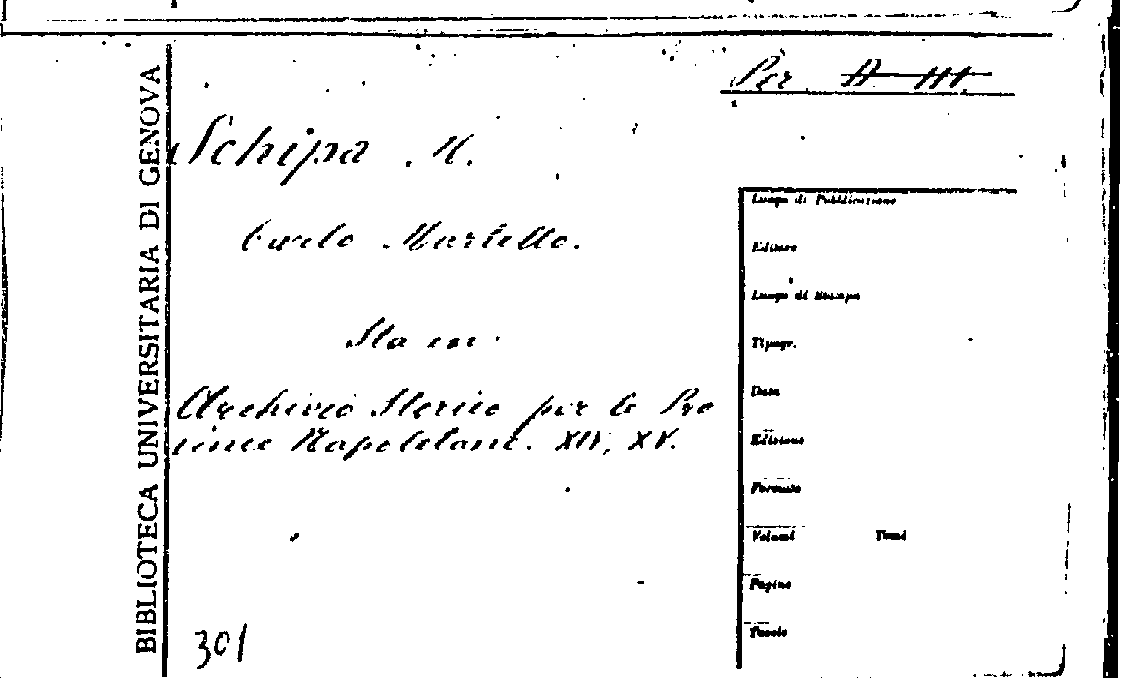 Per A III.
BIBLIOTECA UNIVERSITARIA DI GENOVA
Schipa M.
Carlo Martello.
Sta in
Archivio Storico per le Pro
vince Napoletane. XIV, XV.
301
Luogo di Pubblicazione
Editore
Luogo di Stampa
Tipogr.
Data
Edizione
Formato
Volumi Tomi
Pagine
Tavole